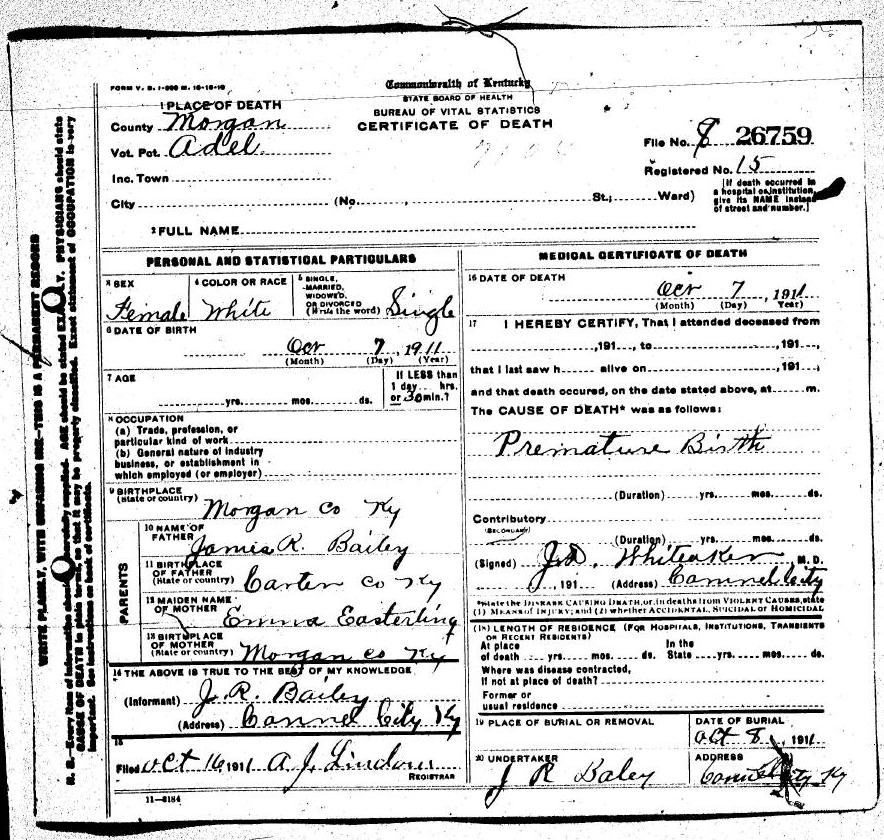 FORM V. S. 1-
Commonwealth of Kentucky
STATE BOARD OF HEALTH
BUREAU OF VITAL STATISTICS
CERTIFICATE OF DEATH
1 PLACE OF DEATH
County Morgan
Vot. Pct. Adel
Inc. Town
City (No. , St.; Ward)
File No. 26759
Registered No. 15
[If death occurred in
a hospital or institution,
give its NAME instead
of street and number.]
2 FULL NAME
PERSONAL AND STATISTICAL PARTICULARS
3 SEX
Female
4 COLOR OR RACE
White
5 SINGLE,
MARRIED,
WIDOWED,
OR DIVORCED
(Write the word) Single
6 DATE OF BIRTH
Oct 7, 1911
(Month) (Day) (Year)
7 AGE
yrs. mos. ds.
If LESS than
1 day hrs.
or 30 min.?
8 OCCUPATION
(a) Trade, profession, or
particular kind of work
(b) General nature of industry
business, or establishment in
which employed (or employer)
9 BIRTHPLACE
(State or country)
Morgan Co Ky
PARENTS
10 NAME OF
FATHER
James R. Bailey
11 BIRTHPLACE
OF FATHER
(State or country) Carter Co Ky
12 MAIDEN NAME
OF MOTHER
Emma Easterling
13 BIRTHPLACE
OF MOTHER
(State or country) Morgan Co Ky
14 THE ABOVE IS TRUE TO THE BEST OF MY KNOWLEDGE
(Informant) J. R. Bailey
(Address) Cannel City Ky
15
Filed Oct 16 1911 A. J.
REGISTRAR
11-3184
MEDICAL CERTIFICATE OF DEATH
16 DATE OF DEATH
Oct 7, 1911
(Month) (Day) (Year)
17 I HEREBY CERTIFY, That I attended deceased from
, 191 , to , 191 ,
that I last saw h alive on , 191 ,
and that death occured, on the date stated above, at m.
The CAUSE OF DEATH* was as follows:
Premature Birth
(Duration) yrs. mos. ds.
Contributory
(SECONDARY)
(Duration) yrs. mos. ds.
(Signed) J.D. Whiteaker M. D.
, 191 (Address) Cannel City
*State the DISEASE CAUSING DEATH, or, in deaths from VIOLENT CAUSES, state
(1) MEANS OF INJURY; and (2) whether ACCIDENTAL, SUICIDAL or HOMICIDAL
(18) LENGTH OF RESIDENCE (FOR HOSPITALS, INSTITUTIONS, TRANSIENTS
OR RECENT RESIDENTS)
At place In the
of death yrs. mos. ds. State yrs. mos. ds.
Where was disease contracted,
If not at place of death?
Former or
usual residence
19 PLACE OF BURIAL OR REMOVAL
DATE OF BURIAL
Oct 8, 1911
20 UNDERTAKER
J R Baley
ADDRESS
Cannel City Ky
N. B.—Every item of information should be carefully supplied. AGE should be stated EXACTLY. PHYSICIANS should state
CAUSE OF DEATH in plain terms, so that it may be properly classified. Exact statement of OCCUPATION is very
important. See instructions on back of certificate.